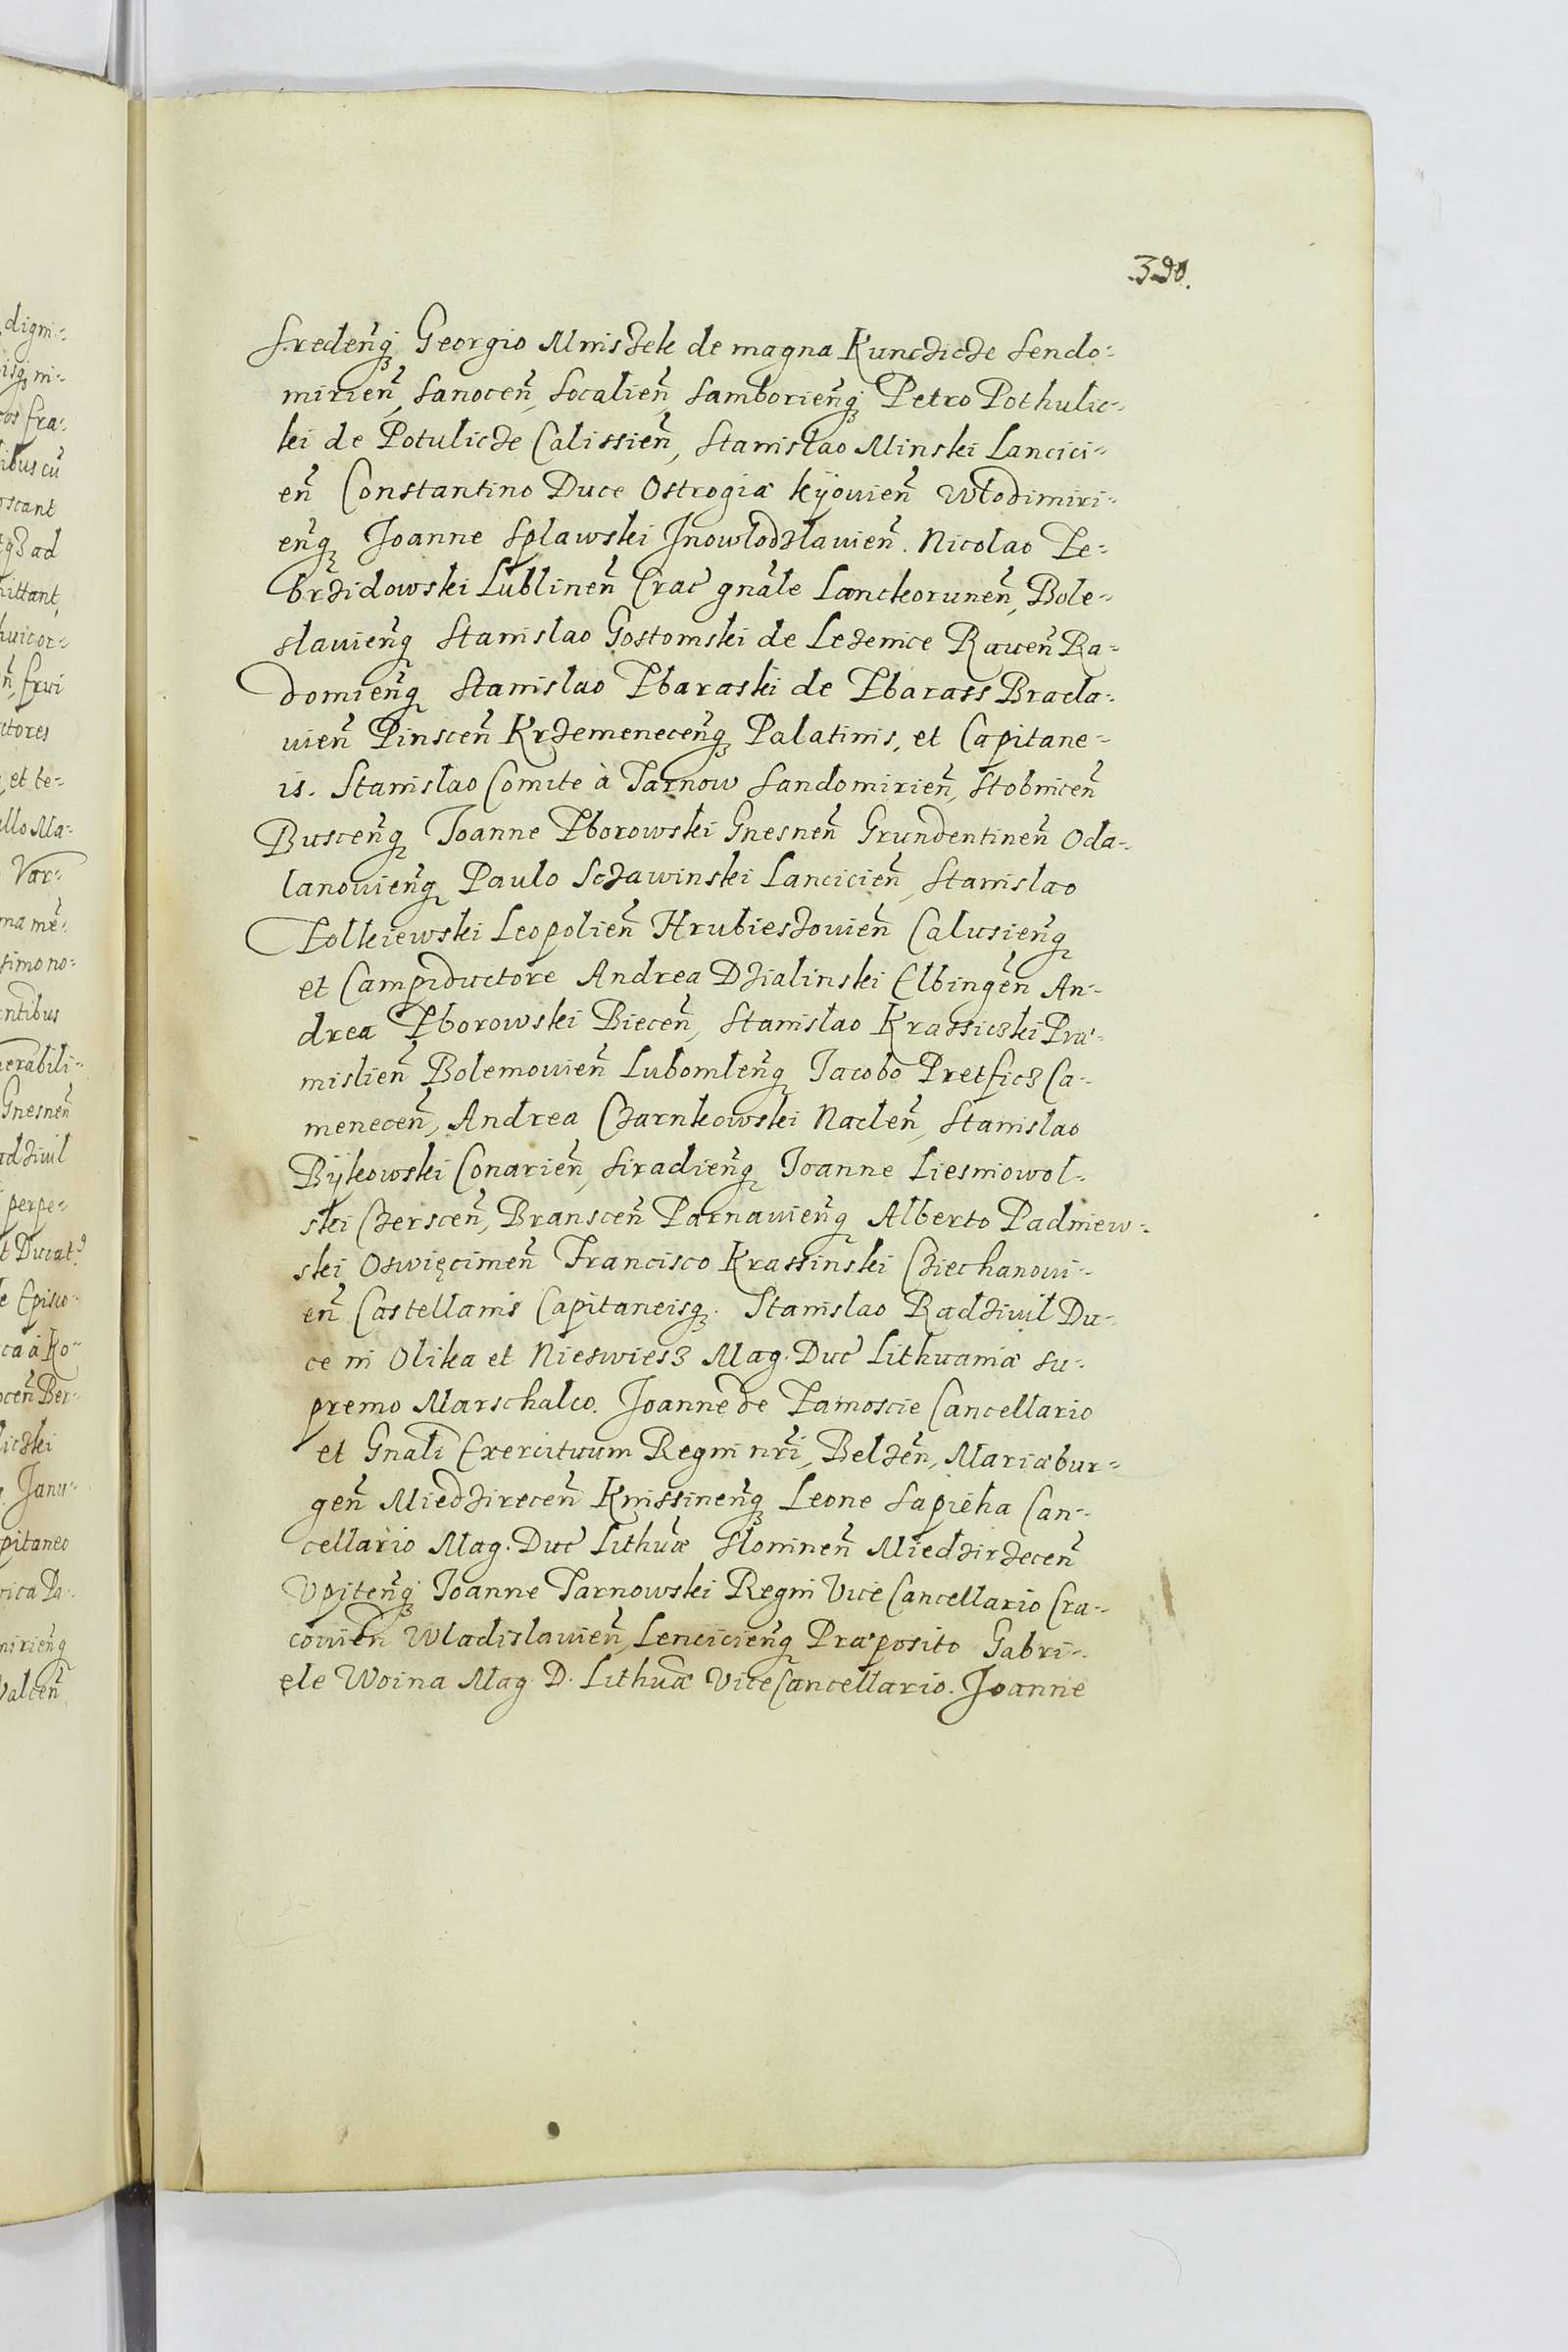 390.
Sredenq̃ Georgio Mniszek de magna Kunczicze Sendo=
mirien̄, Sanocen̄, Socalien̄, Samborienq̃ Petro Pothulic=
ki de Potulicze Calissien̄, Stanislao Minski Lancici=
en̄ Constantino Duce Ostrogiæ kÿouien̄ Włodimiri=
enq̃ Joanne Splawski Jnowlodzlauien̄. Nicolao Ze=
brzidowski Lublinen̄ Crac̄ gn̄ale Lanckorunen̄, Bole=
slauienq̃ Stanislao Gostomski de Lezenice Rauen̄ Ra=
domienq̃ Stanislao Zbaraski de Zbarass Bracla=
uien̄ Pinscen̄ Krzemenecenq̃ Palatinis, et Capitane=
is. Stanislao Comite à Tarnow Sandomirien̄, Stobnicen̄
Buscenq̃ Joanne Zborowski Gnesnen̄ Grundentinen̄ Oda=
lanouienq̃ Paulo Sczawinski Lancicien̄, Stanislao
Zolkiewski Leopolien̄ Hrubieszouien̄ Calusienq̃
et Campiductore Andrea Dzialinski Elbingen̄ An=
drea Zborowski Biecen̄, Stanislao Krassicski Præ=
mislien̄ Bolemouien̄ Lubomlenq̃ Jacobo Pretfics Ca=
menecen̄, Andrea Czarnkowski Naclen̄, Stanislao
Bÿkowski Conarien̄, Siradienq̃ Joanne Liesniowol=
ski Czerscen̄, Branscen̄ Parnauienq̃ Alberto Padniew=
ski Oswięcimen̄ Francisco Krassinski Cziechanoui=
en̄ Castellanis Capitaneisq̃. Stanislao Radziuil Du=
ce in Olika et Nieswiesz Mag. Duc̄ Lithuaniæ Su=
premo Marschalco. Joanne de Zamoscie Cancellario
et Gn̄ali Exercituum Regni nr̄i, Belzen̄, Mariæbur=
gen̄ Miedzirecen̄ Knissinenq̃ Leone Sapieha Can=
cellario Mag. Duc̄ Lithuæ Slonimen̄ Miedzirzecen̄
Vpitenq̃ Joanne Tarnowski Regni Vice Cancellario Cra=
couien̄ Wladislauien̄, Lencicienq̃ Præposito Gabri=
ele Woina Mag. D. Lithuæ ViceCancellario. Joanne